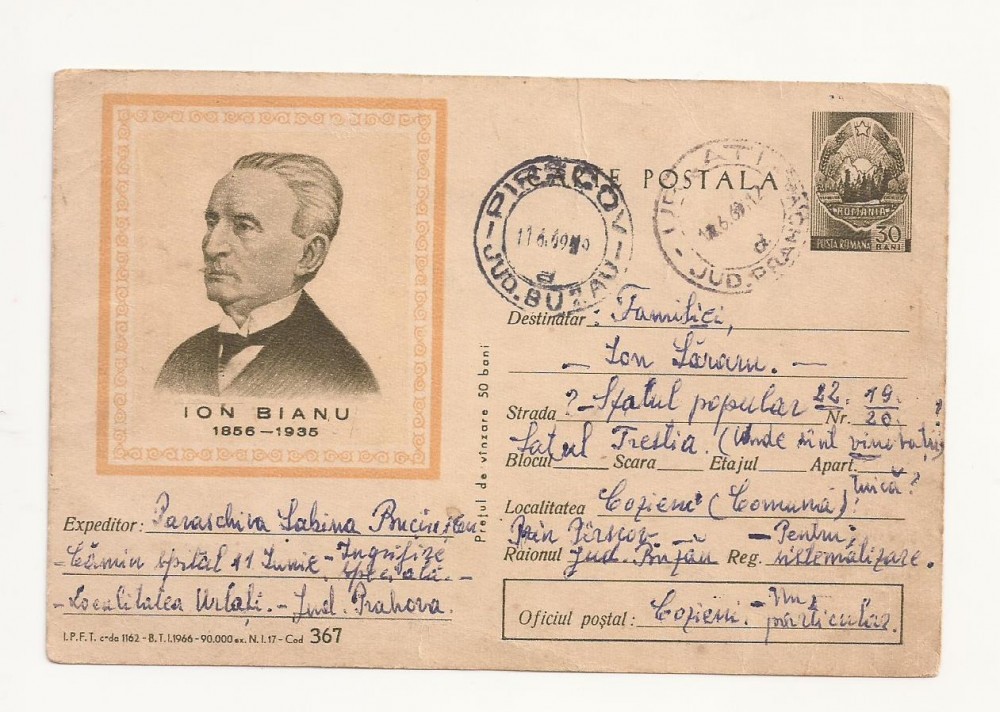 ION BIANU
1856-1935
Expeditor: Paraschiva Sabina
- Cămin spital 11 Iunie - Îngrijire specială. -
- Localitatea Urlați. - Jud. Prahova.
I.P.F.T. c-da 1162 - B.T.I.1966 - 90.000 ex. N.I.17 - Cod 367
Prețul de vînzare 50 bani
PIRSCOV
11.6.69
a
JUD. BUZAU
E POSTALA
URLATI
6.69.12
d
JUD. PRAHOVA
ROMANIA
POSTA ROMANA 30 BANI
Destinatar: Familiei,
- Ion
Strada ? - Sfatul popular 22. 19. Nr. 20. ?
Satul Trestia (Unde sînt
Blocul Scara Etajul Apart.
țuică?
Localitatea Cozieni (Comuna)!
Prin Pîrscov - Pentru
Raionul Jud. Buzău Reg. sistematizare.
Oficiul poștal: Cozieni. - Nu
particular.